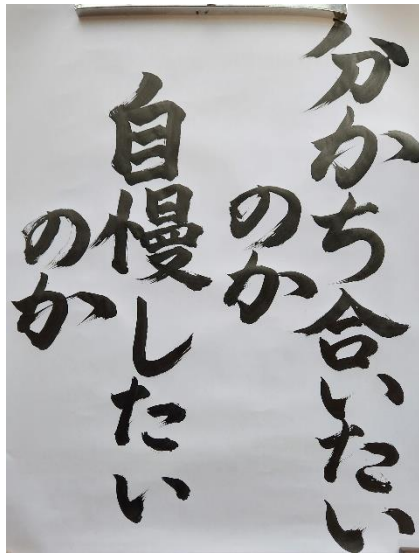 分かち合いたい
のか
自慢したい
のか